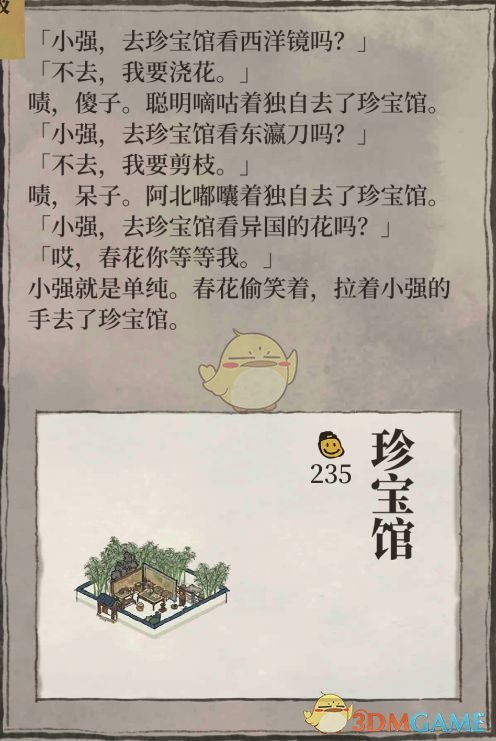 「小强，去珍宝馆看西洋镜吗？」
「不去，我要浇花。」
啧，傻子。聪明嘀咕着独自去了珍宝馆。
「小强，去珍宝馆看东瀛刀吗？」
「不去，我要剪枝。」
啧，呆子。阿北嘟囔着独自去了珍宝馆。
「小强，去珍宝馆看异国的花吗？」
「哎，春花你等等我。」
小强就是单纯。春花偷笑着，拉着小强的
手去了珍宝馆。
珍宝馆
235
3DMGAME